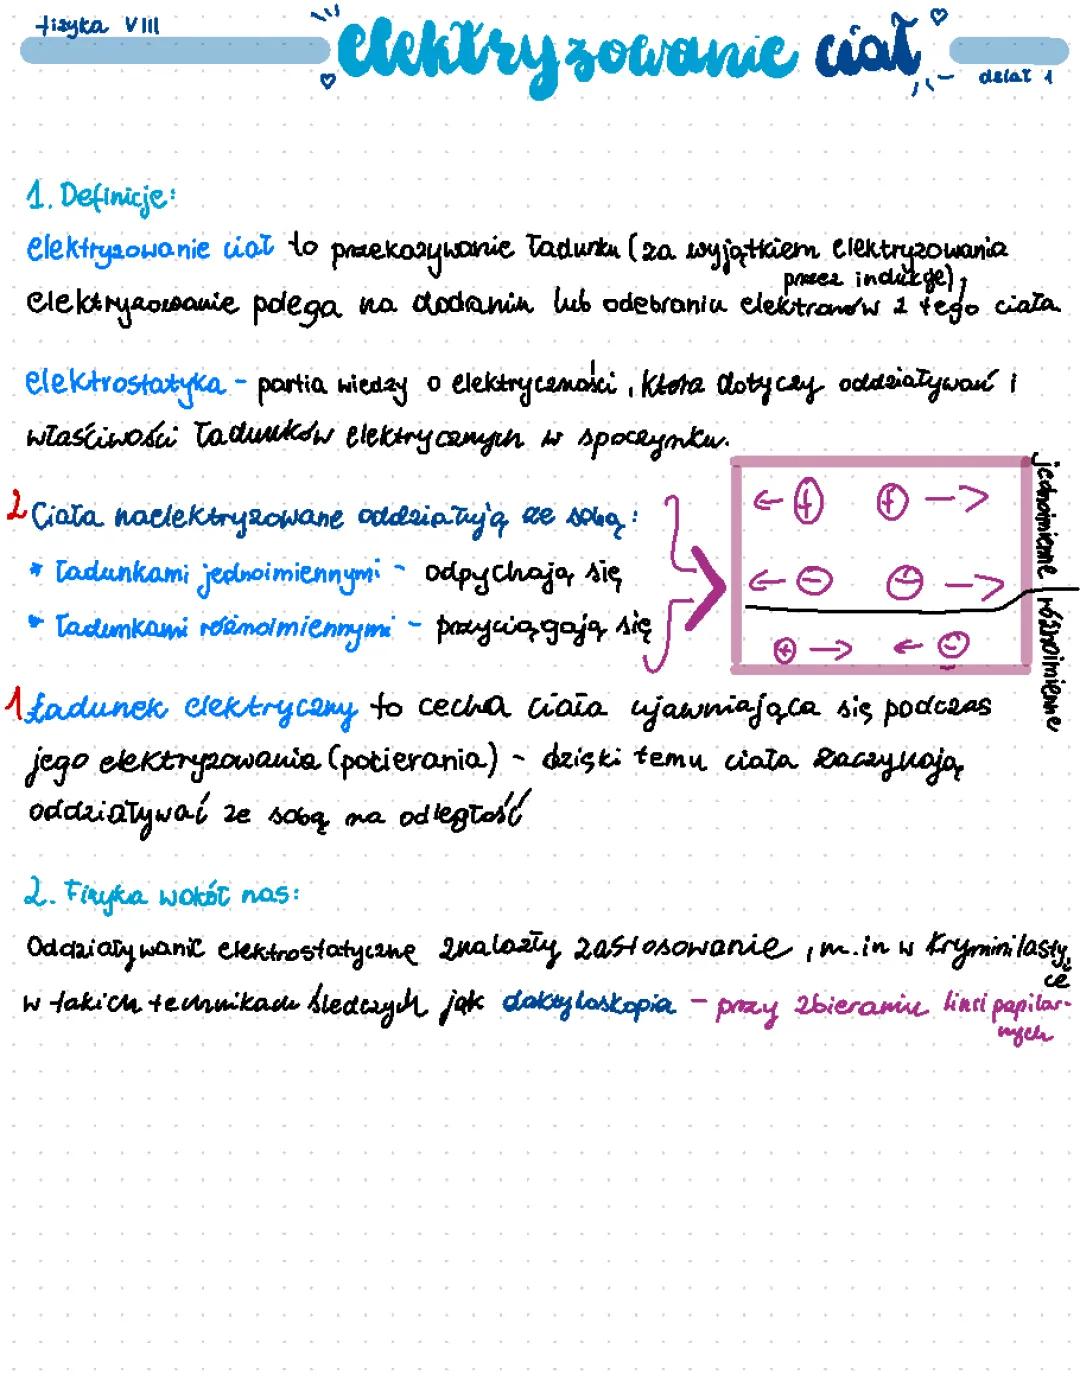 fizyka VIII
elektryzowanie ciał
dział 1
1. Definicje:
elektryzowanie ciał to przekazywanie ładunku (za wyjątkiem elektryzowania
przez indukcję),
elektryzowanie polega na dodaniu lub odebraniu elektronów z tego ciała
elektrostatyka - partia wiedzy o elektryczności, która dotyczy oddziaływań i
właściwości ładunków elektrycznych w spoczynku.
2 Ciała naelektryzowane oddziałują ze sobą:
* ładunkami jednoimiennymi - odpychają się
* ładunkami różnoimiennymi - przyciągają się
← + + →
← - - →
+ → ← -
jednoimienne
różnoimienne
1 Ładunek elektryczny to cecha ciała ujawniająca się podczas
jego elektryzowania (pocierania) - dzięki temu ciała zaczynają
oddziaływać ze sobą na odległość
2. Fizyka wokół nas:
Oddziaływanie elektrostatyczne znalazły zastosowanie, m.in w kryminilasty,
ce
w takich technikach śledczych jak daktyloskopia - przy zbieraniu linii papilar-
nych